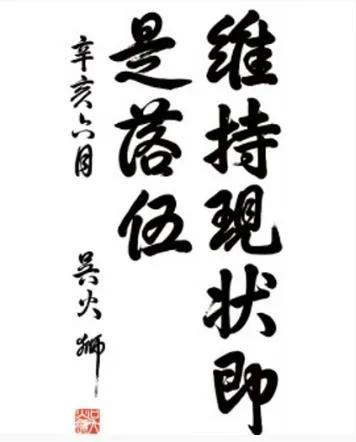 維持現状即
是落伍
辛亥六月
吳火獅